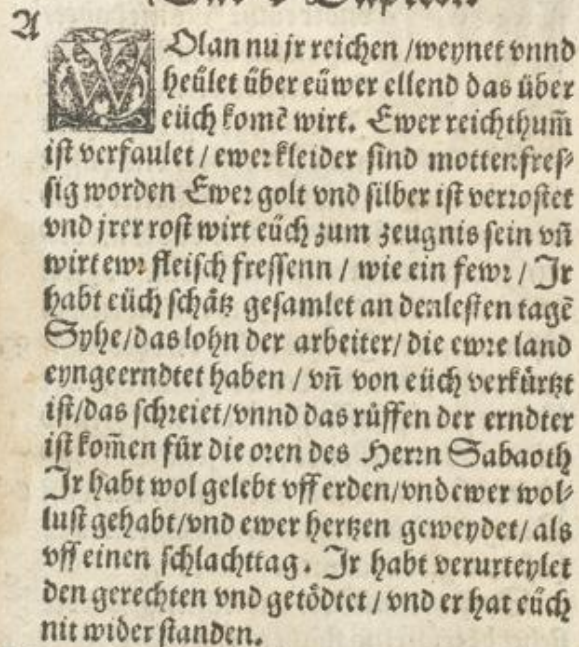 A
WOlan nu jr reichen /weynet vnnd
heület über eüwer ellend das über
eüch komẽ wirt. Ewer reichthum̃
ist verfaulet / ewer kleider sind mottenfres⸗
sig worden Ewer golt vnd silber ist verrostet
vnd jrer rost wirt eüch zum zeugnis sein vñ
wirt ewr fleisch fressenn / wie ein fewr / Jr
habt eüch schätz gesamlet an den lesten tagẽ
Syhe/das lohn der arbeiter/ die ewre land
eyngeerndtet haben / vñ von eüch verkürtzt
ist/das schreiet/vnnd das rüffen der erndter
ist kom̃en für die oren des Herrn Sabaoth
Jr habt wol gelebt vff erden/vnd ewer wol⸗
lust gehabt/vnd ewer hertzen geweydet/ als
vff einen schlachttag. Jr habt verurteylet
den gerechten vnd getödtet / vnd er hat eüch
nit wider standen.